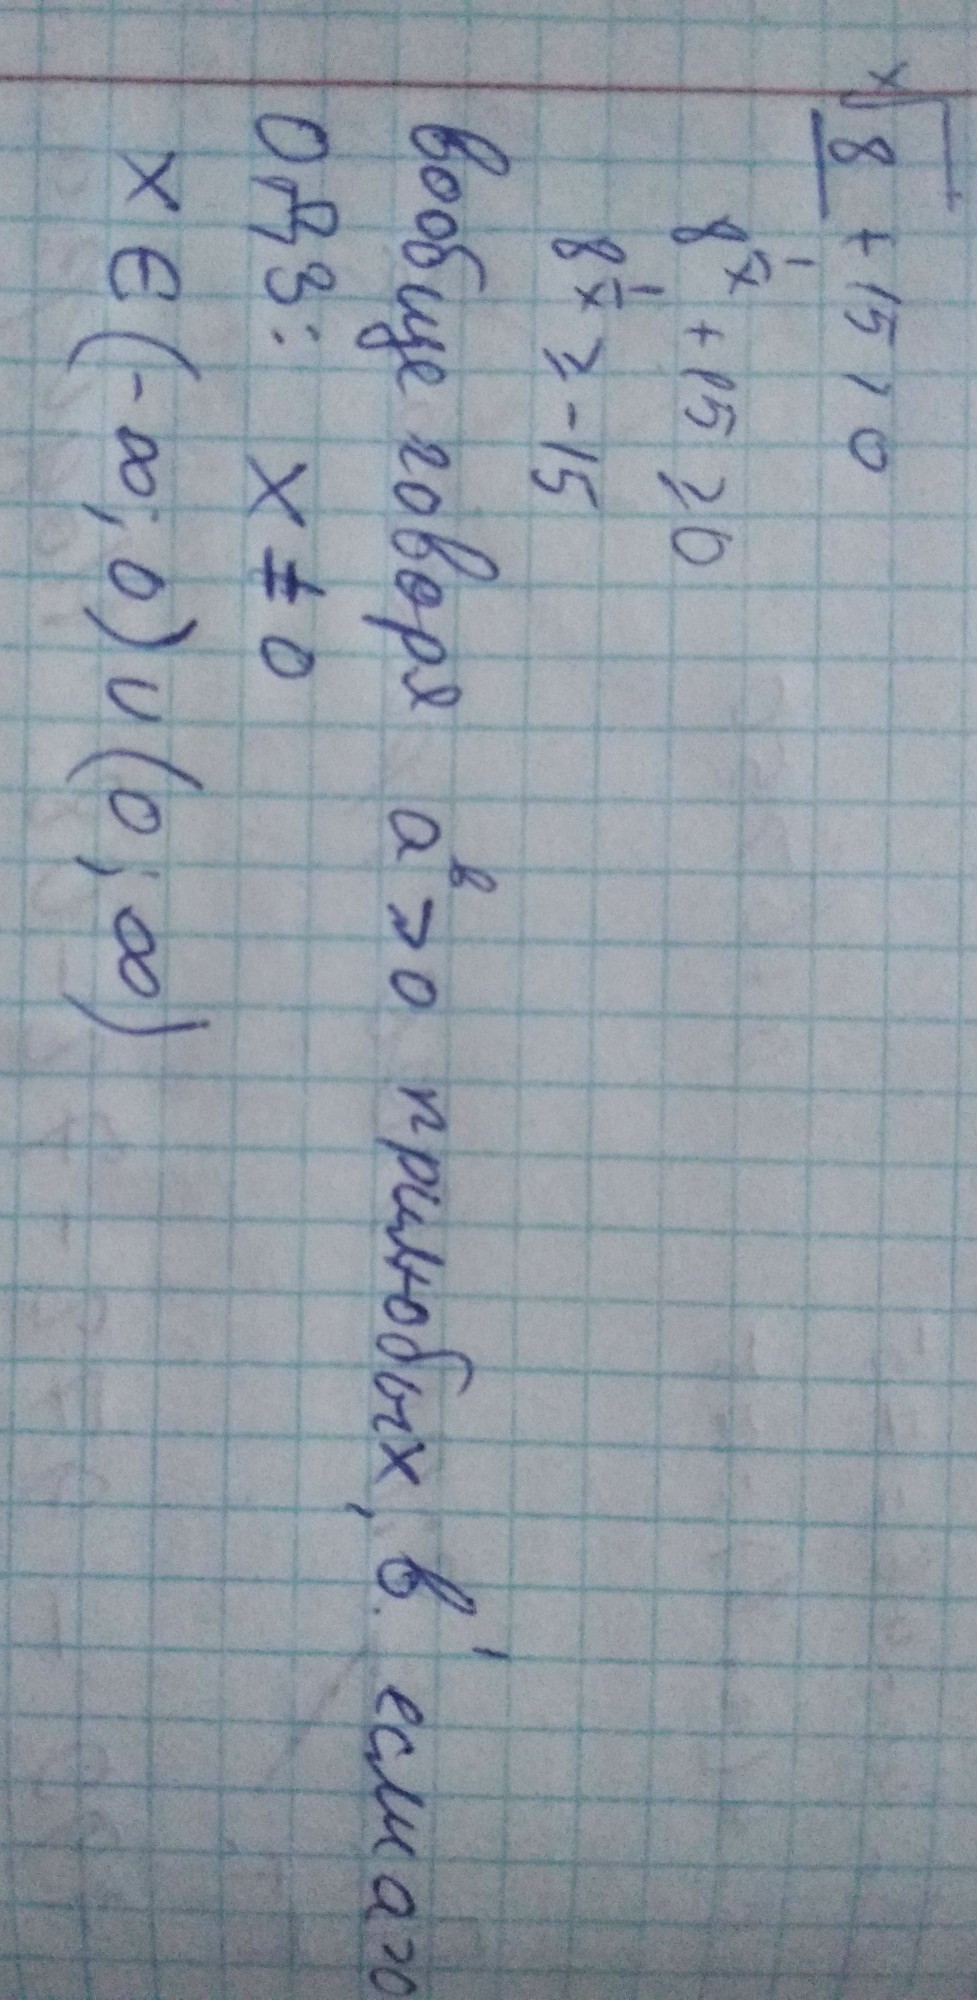 ˣ√8 + 15 > 0
8^(1/x) + 15 ≥ 0
8^(1/x) ≥ -15
вообще говоря a^b > 0 при любых, b, если a>0
ОДЗ: x ≠ 0
x ∈ (-∞; 0) ∪ (0; ∞)